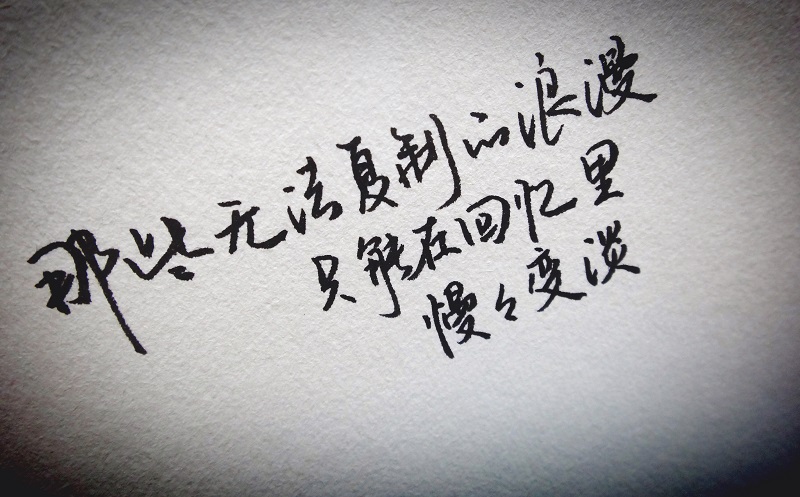 那些无法复制的浪漫
只能在回忆里
慢々变淡